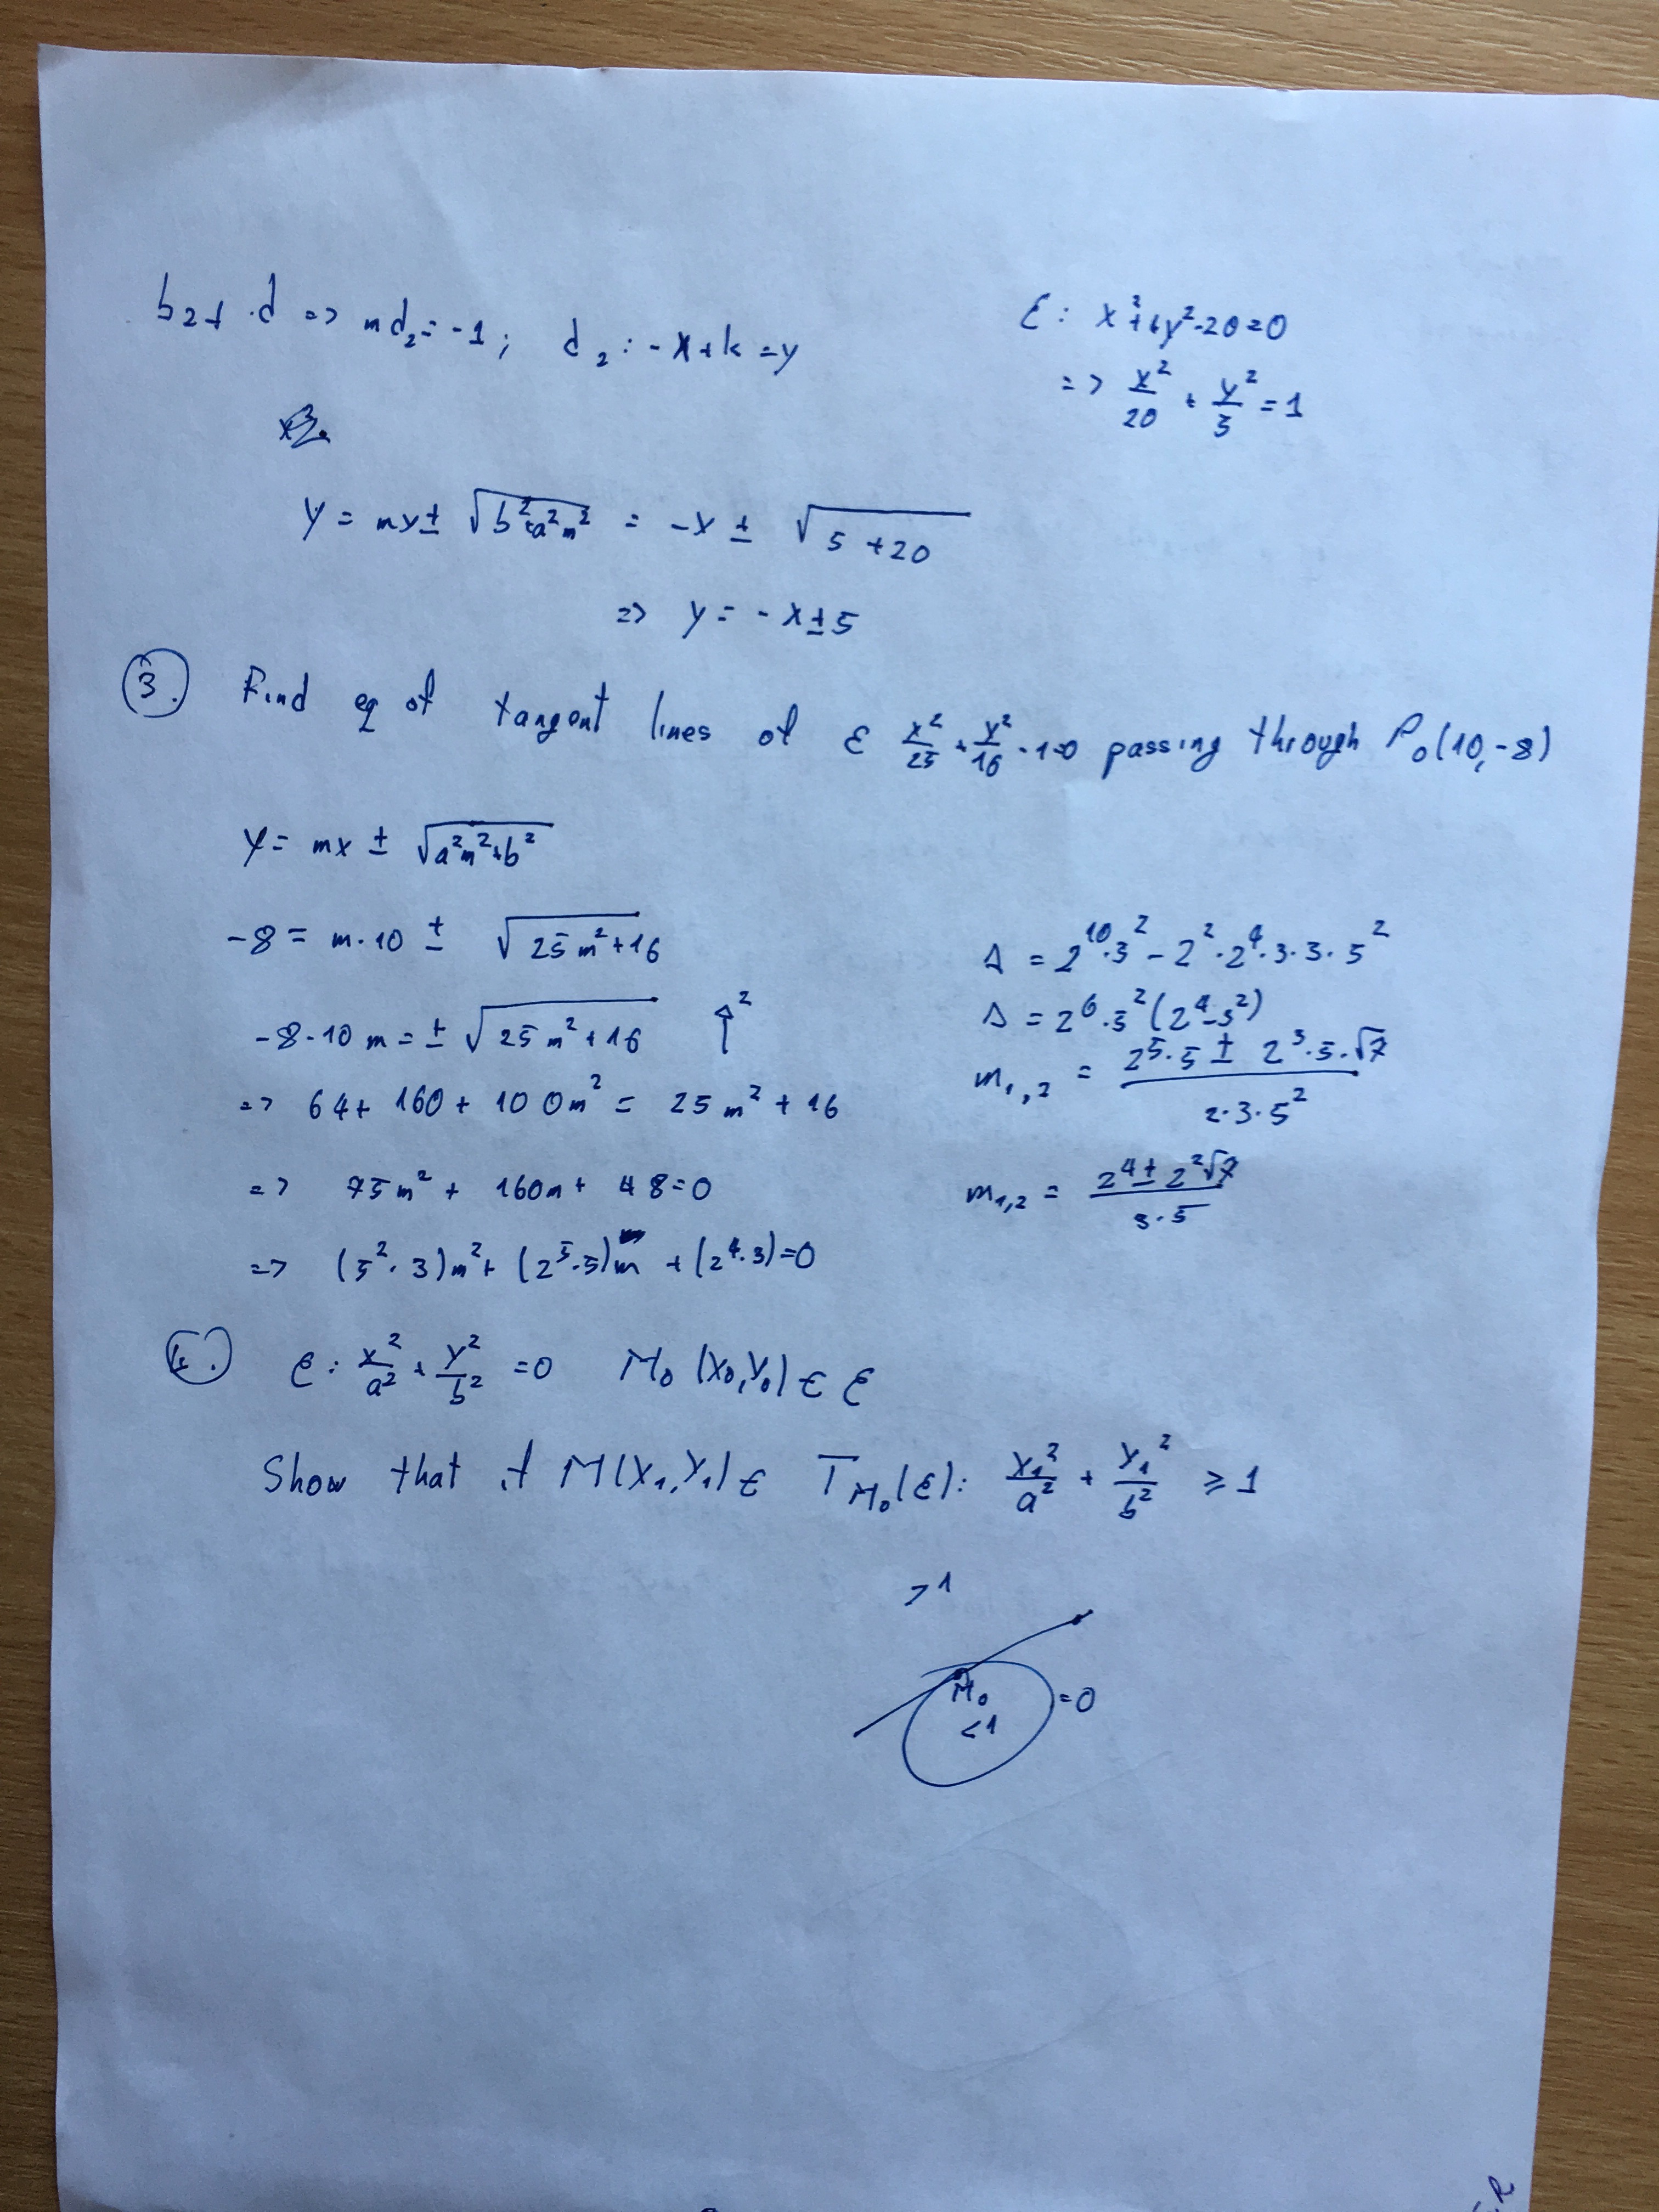 b₂⊥ d => md₂ = -1; d₂ : -x+k = y
ε: x²+4y²-20=0
=> x²/20 + y²/5 = 1
y = mx ± √(b²+a²m²) = -x ± √(5+20)
=> y = -x ± 5
3. Find eq of tangent lines of ε x²/25 + y²/16 - 1=0 passing through P₀(10,-8)
y = mx ± √(a²m²+b²)
-8 = m·10 ± √(25m²+16)
-8-10m = ± √(25m²+16) ↑²
=> 64+ 160+ 100m² = 25m² + 16
=> 75m² + 160m + 48=0
=> (5²·3)m² + (2⁵·5)m + (2⁴·3)=0
Δ = 2¹⁰·5² - 2²·2⁴·3·3·5²
Δ = 2⁶·5²(2⁴-3²)
m₁,₂ = (2⁵·5 ± 2³·5·√7)/(2·3·5²)
m₁,₂ = (2⁴ ± 2²√7)/(3·5)
4. ε: x²/a² + y²/b² =0 M₀(x₀,y₀) ∈ ε
Show that if M(x₁,y₁) ∈ T_M₀(ε): x₁²/a² + y₁²/b² ≥ 1
>1
M₀
=0
<1